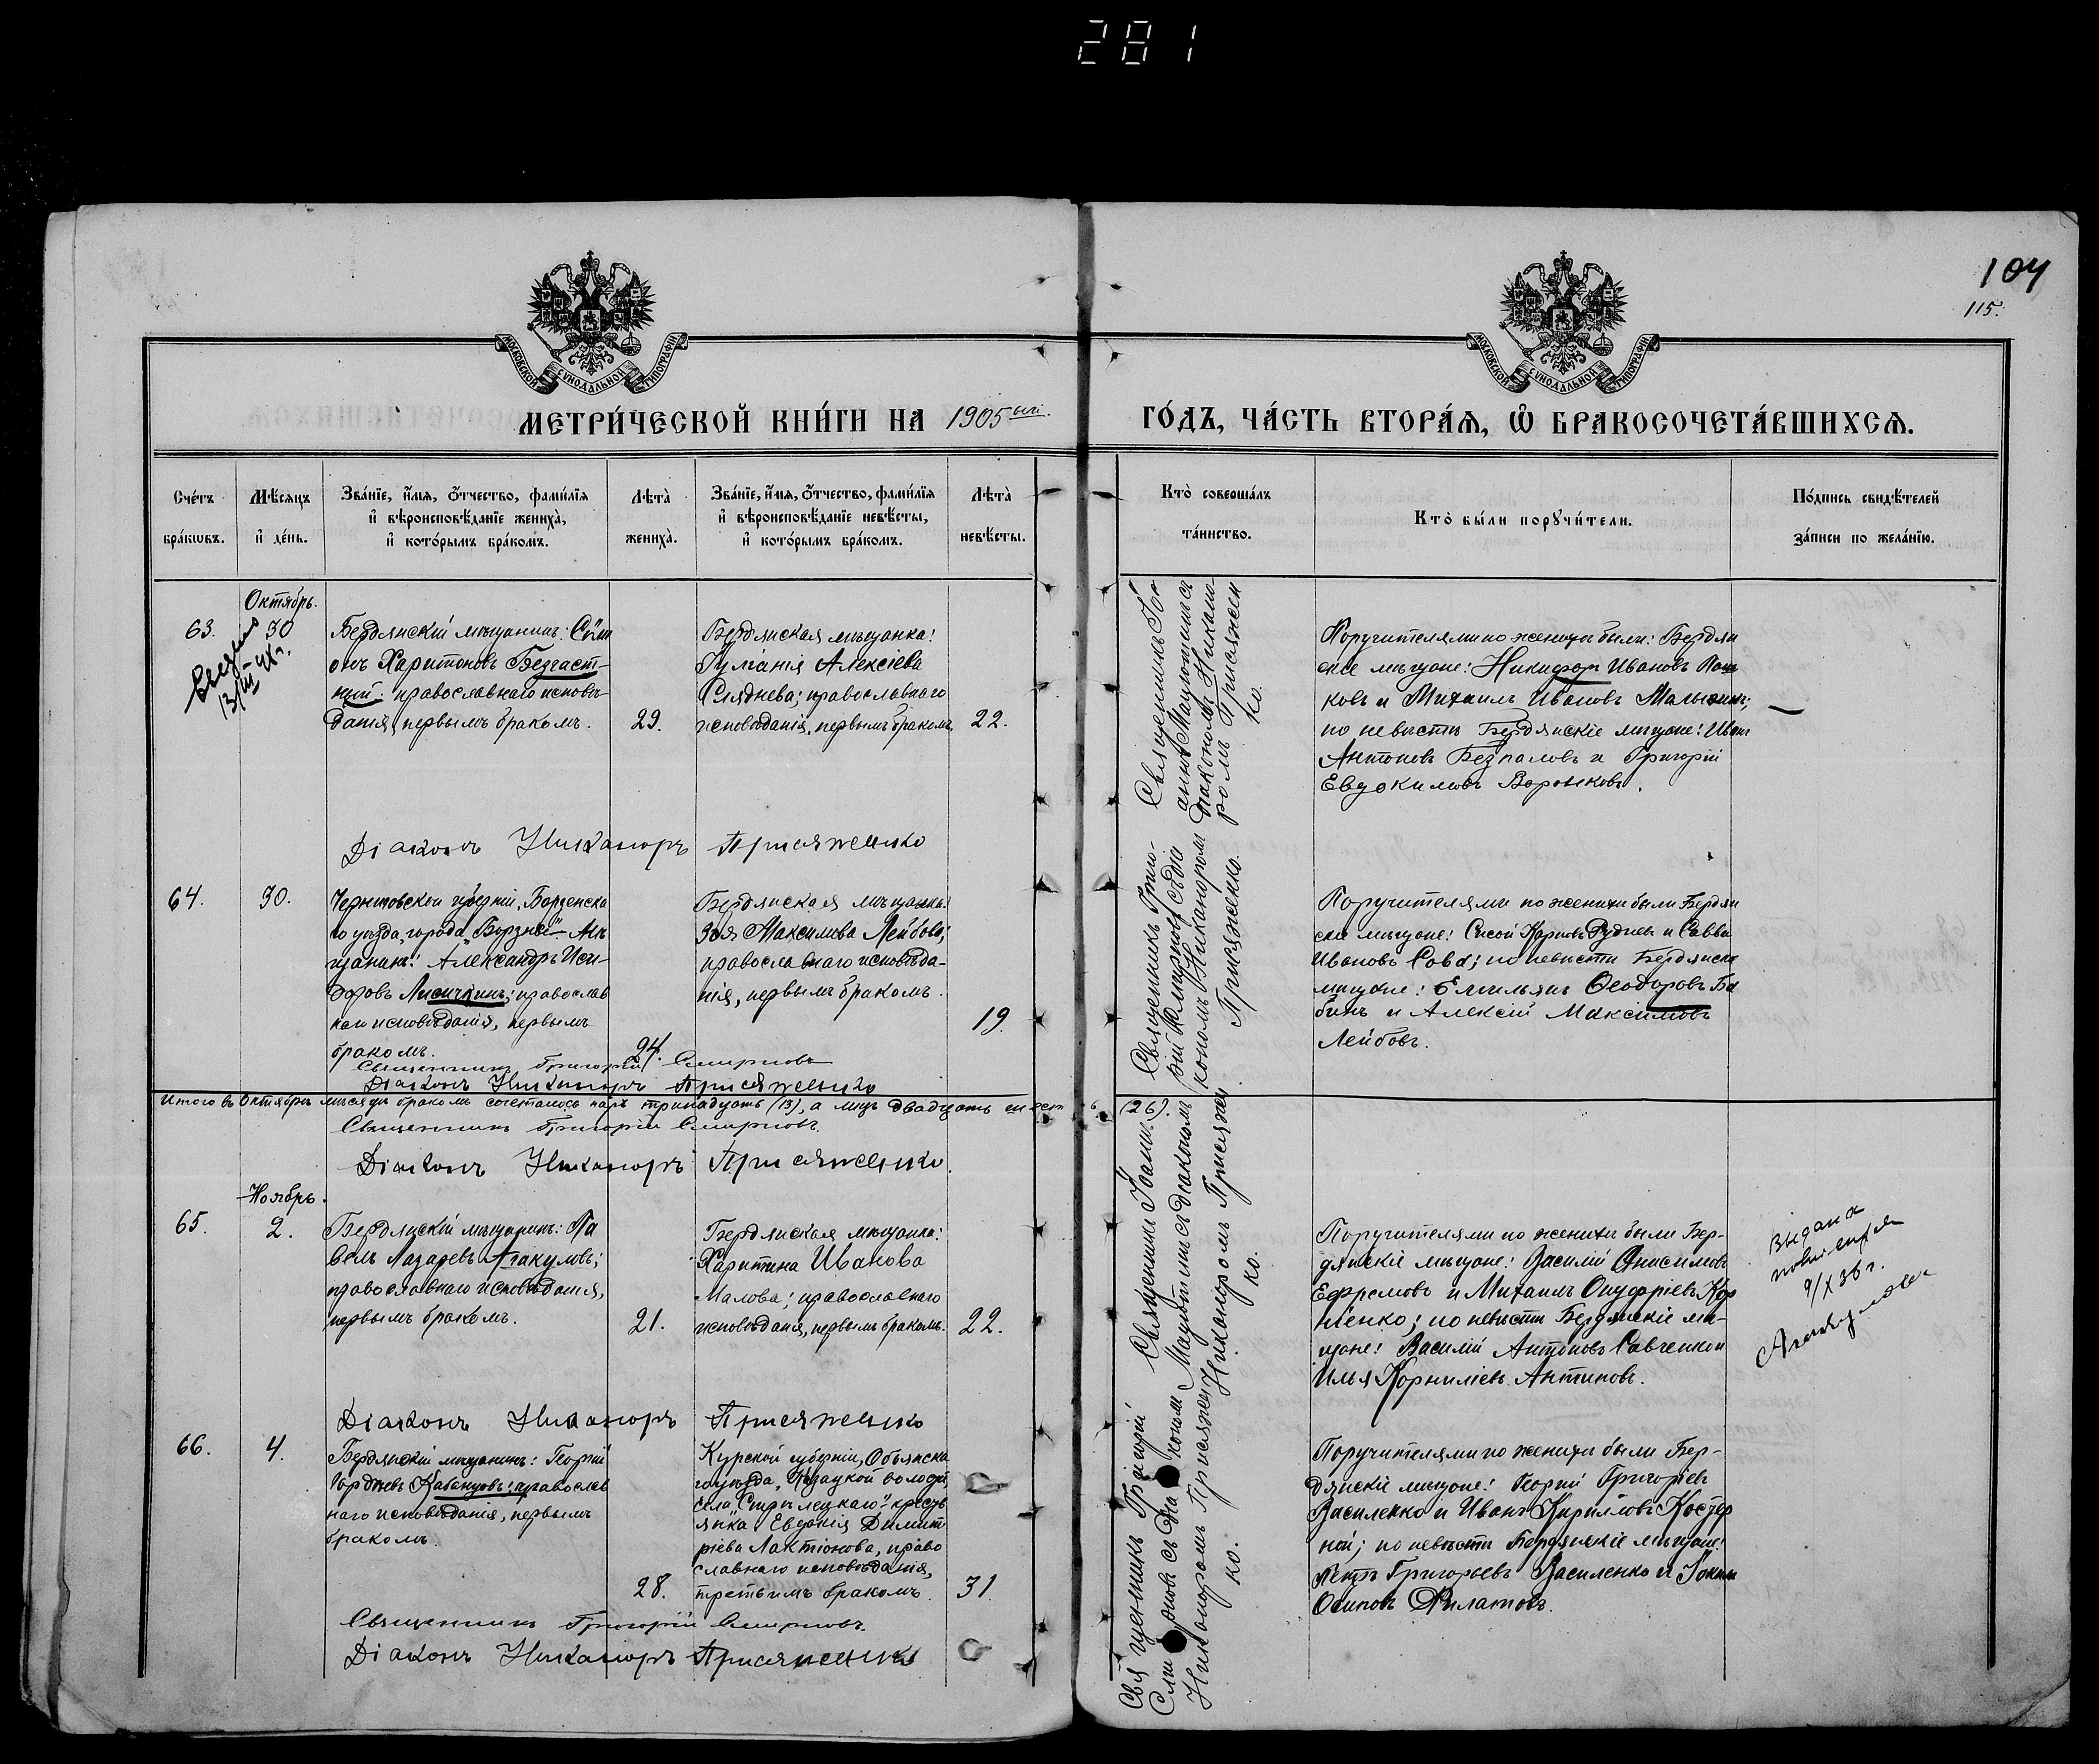 281
104
115.
МОСКОВСКОЙ СѴНОДАЛЬНОЙ ТИПОГРАФІИ
МОСКОВСКОЙ СѴНОДАЛЬНОЙ ТИПОГРАФІИ
МЕТРИ́ЧЕСКОЙ КНИ́ГИ НА 1905ый.
ГО́ДЪ, ЧА́СТЬ ВТОРА́Ѧ, Ѽ БРАКОСОЧЕТА́ВШИХСѦ.
Сче́тъ бра́кωвъ.
Мѣ́сѧцъ и҆ де́нь.
Зва́нїе, и҆́мѧ, ѻ҆́тчество, фами́лїѧ и҆ вѣроисповѣ́данїе жениха̀, и҆ кото́рымъ бра́комъ.
Лѣта̀ жениха̀.
Зва́нїе, и҆́мѧ, ѻ҆́тчество, фами́лїѧ и҆ вѣроисповѣ́данїе невѣ́сты, и҆ кото́рымъ бра́комъ.
Лѣта̀ невѣ́сты.
Кто̀ соверша́лъ та́инство.
Кто̀ бы́ли порꙋчи́тели.
По́дпись свидѣ́телей за́писи по жела́нїю.
Октябрь.
63.
30
Бердянскій мѣщанинъ: Сѵм
онъ Харитоновъ Безчаст-
ный: православнаго исповѣ
данія, первымъ бракомъ.
29.
Бердянская мѣщанка:
Алексіева
православнаго
исповѣданія, первымъ бракомъ.
22.
Священникъ Іо-
діакономъ Никано-
ромъ Присяжен
ко.
Поручителями по женихѣ были: Бердян
скіе мѣщане: Никифоръ Ивановъ Пош
ковъ и Михаилъ Ивановъ Малыхинъ;
по невѣстѣ Бердянскіе мѣщане: Иванъ
Антоновъ Безпаловъ и Григорій
Евдокимовъ Воронковъ.
Діаконъ Никаноръ Присяженко
64.
30.
Черниговской губерніи, Борзенска
го уѣзда, города „Борзны" мѣ
щанинъ: Александръ Иси-
доровъ Лисичкинъ; православ
наго исповѣданія, первымъ
бракомъ.
24.
Бердянская мѣщанка:
Зоя Максимова Лейбова;
православнаго исповѣда-
нія, первымъ бракомъ.
19.
Священникъ Григо-
рій Смирновъ съ діа
кономъ Никаноромъ
Присяженко.
Поручителями по женихѣ были Бердян
скіе мѣщане: Сисой Карповъ Рудневъ и Савва
Ивановъ Сова; по невѣстѣ Бердянскіе
мѣщане: Емильянъ Ѳеодоровъ Ба
бинъ и Алексій Максимовъ
Лейбовъ.
Священникъ Григорій Смирновъ
Діаконъ Никаноръ Присяженко
Итого въ Октябрѣ мѣсяцѣ бракомъ сочеталось паръ тринадцать (13), а лицъ двадцать шесть (26).
Священникъ Григорій Смирновъ.
Діаконъ Никаноръ Присяженко.
Ноябрь.
65.
2.
Бердянскій мѣщанинъ: Па
велъ Лазаревъ Агакуловъ;
православнаго исповѣданія,
первымъ бракомъ.
21.
Бердянская мѣщанка:
Харитина Иванова
Малова; православнаго
исповѣданія, первымъ бракомъ.
22.
Священникъ Іоаннъ
съ діакономъ
Никаноромъ Присяжен
ко.
Поручителями по женихѣ были Бер-
дянскіе мѣщане: Василій Анисимовъ
Ефремовъ и Михаилъ Онуфріевъ Кор
ніенко; по невѣстѣ Бердянскіе мѣ-
щане: Василій Антоновъ Савченко и
Илья Корниліевъ Антиповъ.
выдана
9/X 36 г.
Діаконъ Никаноръ Присяженко
66.
4.
Бердянскій мѣщанинъ: Георгій
Гордѣевъ Кабанцовъ; православ
наго исповѣданія, первымъ
бракомъ.
28.
Курской губерніи, Обоянска
го уѣзда, волости,
села „Стрѣлецкаго" кресть
янка Евдокія Димит
ріева Лактіонова, право
славнаго исповѣданія,
третьимъ бракомъ.
31.
Священникъ Григорій
Смирновъ съ діакономъ
Никаноромъ Присяжен
ко.
Поручителями по женихѣ были Бер-
дянскіе мѣщане: Георгій Григоріевъ
Василенко и Иванъ Кирилловъ Костер
ной; по невѣстѣ Бердянскіе мѣщане:
Петръ Григорьевъ Василенко и Іоакимъ
Осиповъ Филатовъ.
Священникъ Григорій Смирновъ.
Діаконъ Никаноръ Присяженко